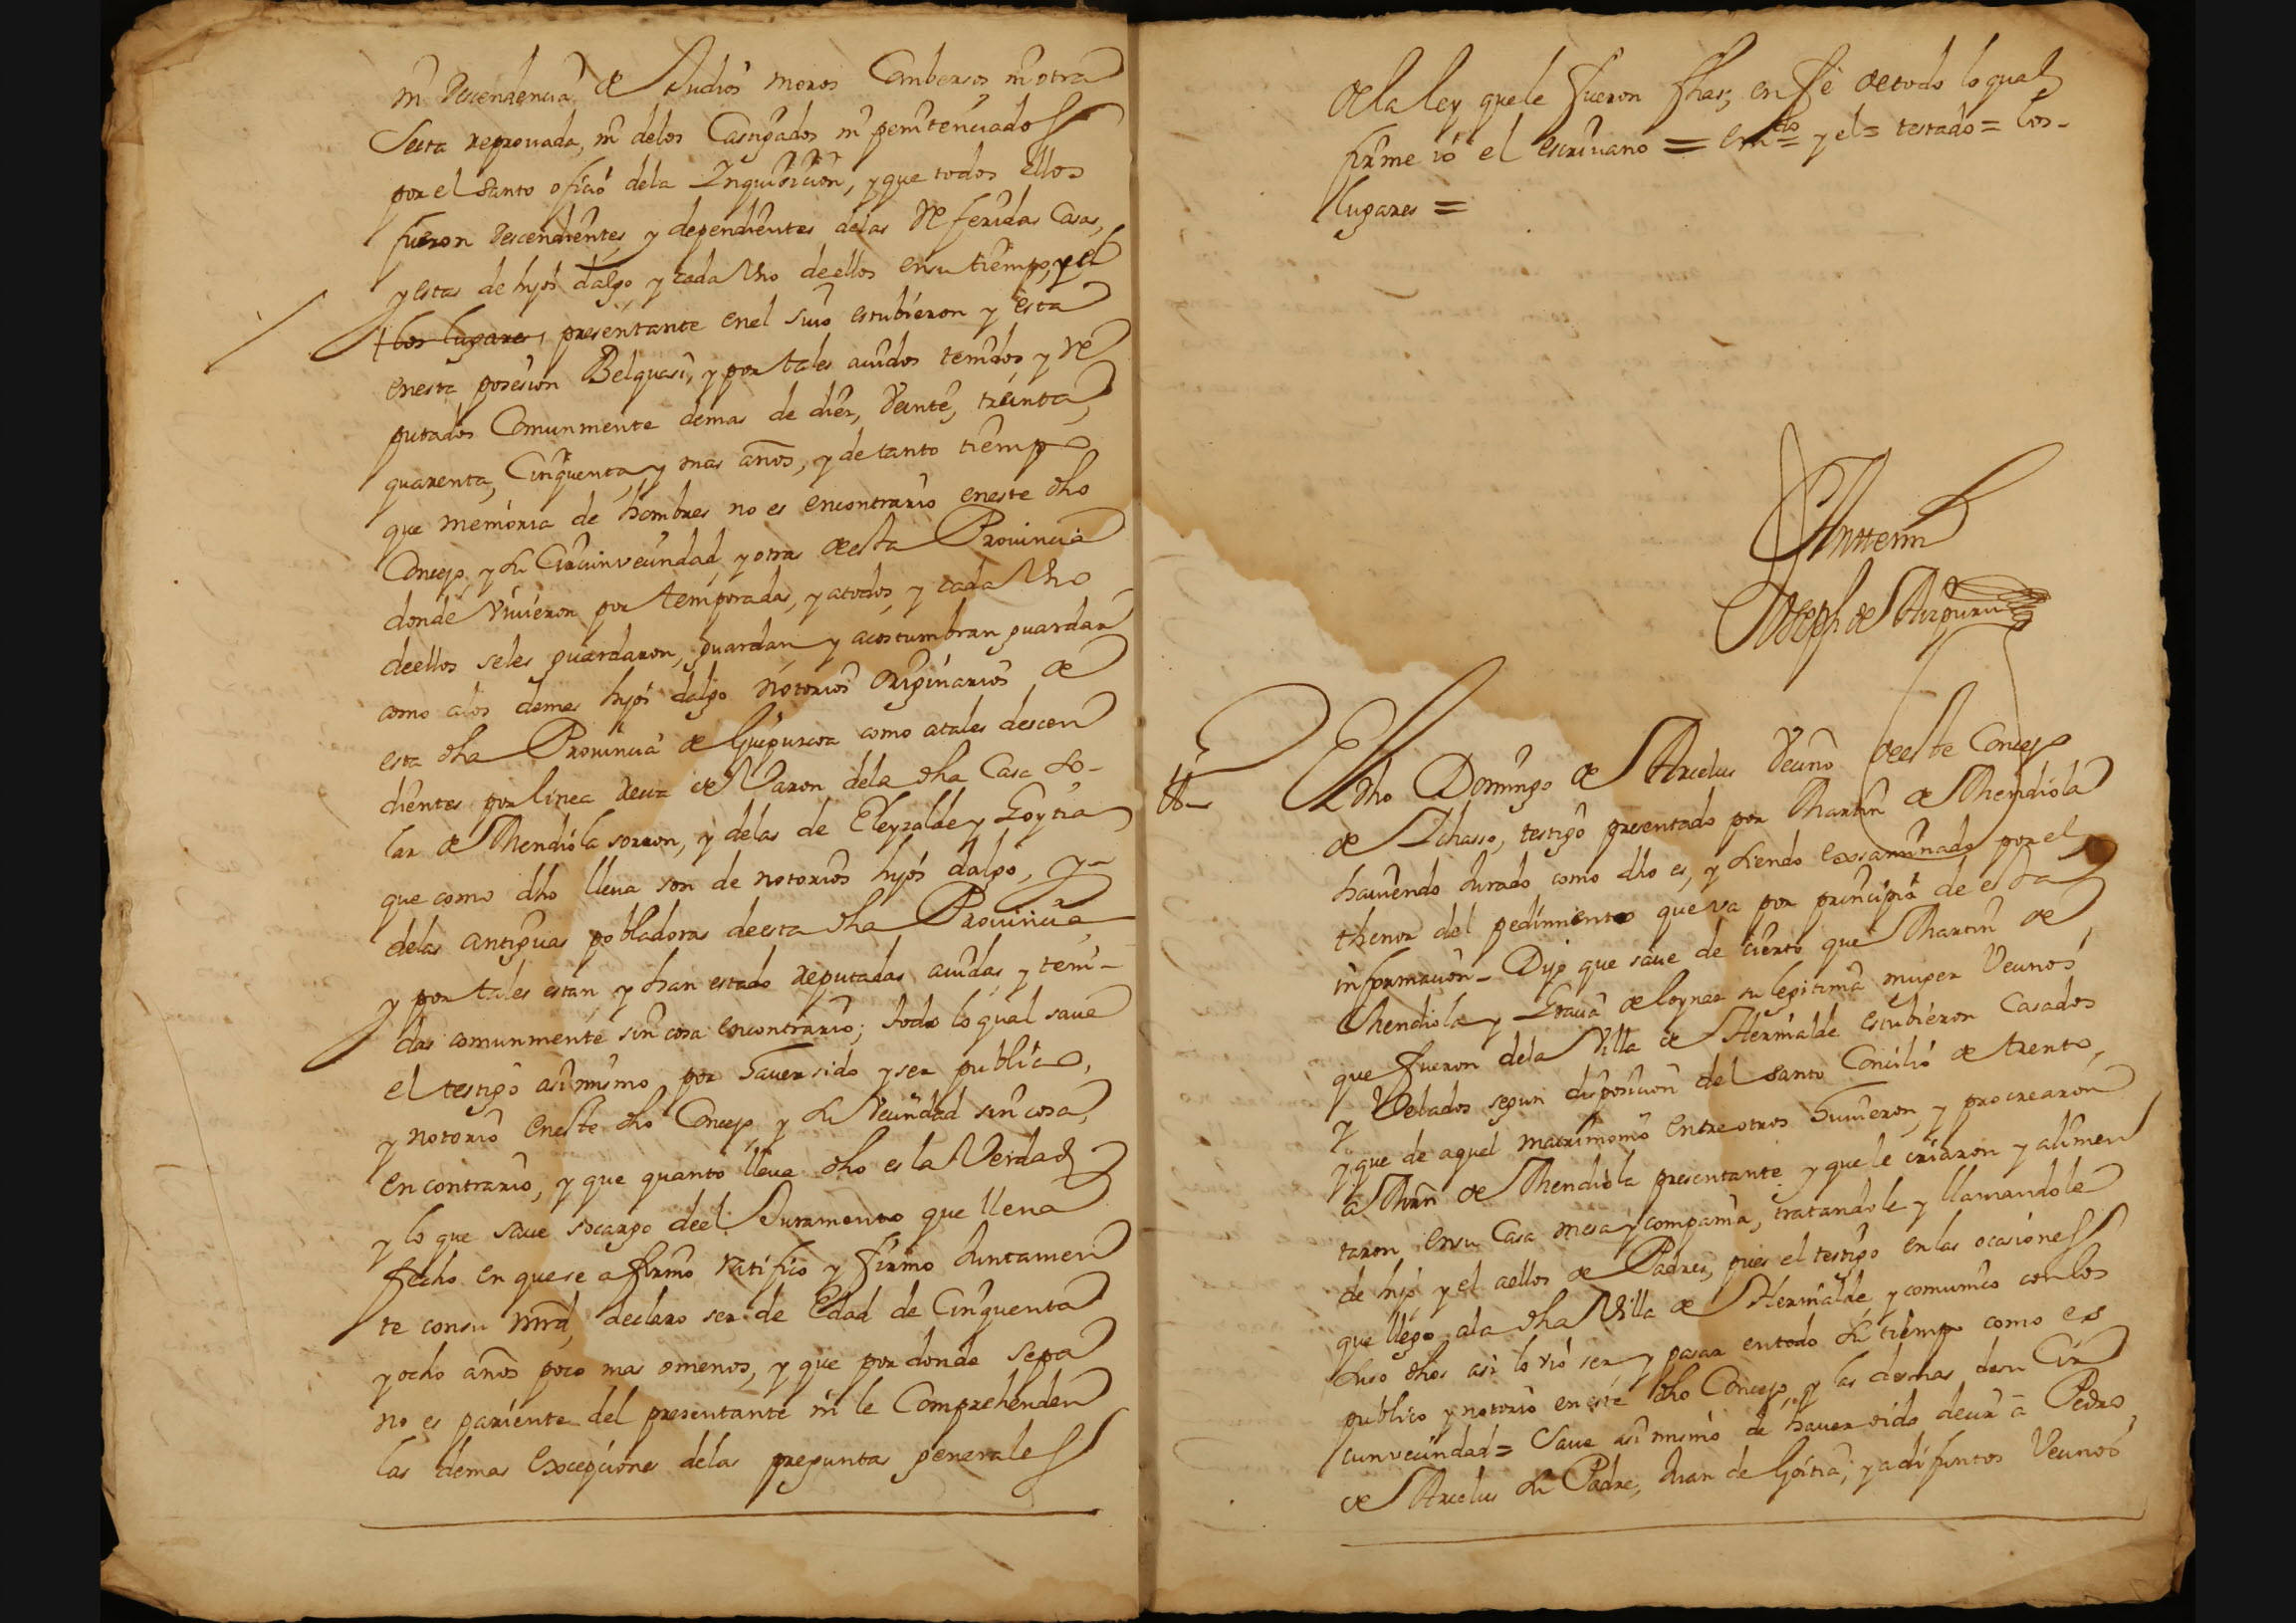 ni Decendencia de Judios moros Conbersos, ni otra
Secta reprouada, ni delos Castigados ni penitenciados
por el Santo oficio dela Inquisicion, y que todos ellos
fueron Descendientes y dependientes delas Referidas Casas,
y estas de hijos dalgo y cada Vno deellos ensu tiempo, y el
los lugares presentante enel suio estubieron y esta
enesta posesion Belquasi, y por tales auidos tenidos y Re
putados Comunmente demas de diez, Veinte, treinta,
quarenta, Cinquenta, y mas años, y de tanto tiempo
que memoria de hombres no es encontrario eneste dho
Concejo, y su Circunvecindad, y otras deesta Prouincia
donde Viuieron por temporadas, y atodos, y cada Vno
deellos seles guardaron, guardan y acostumbran guardar
como alos demas hijos dalgo notorios originarios de
esta dha Prouincia de Guipuzcoa como atales descen
dientes por linea recta de Varon dela dha Casa So-
lar de Mendiola sorron, y delas de Eleyzalde y Goytia
que como dho lleua son de notorios hijos dalgo, y-
delas antiguas pobladoras deesta dha Prouincia
y por tales estan y han estado reputadas auidas, y teni-
das comunmente sin cosa encontrario; todo lo qual saue
el testigo asi mismo por hauer sido y ser publico,
y notorio eneste dho Concejo y su Vecindad sin cosa,
en contrario, y que quanto lleua dho es la Verdad
y lo que saue socargo deel Juramento que lleua
fecho en que se afirmo ratifico y firmo Juntamen
te consu mrd, declaro ser de Edad de Cinquenta
y ocho años poco mas omenos, y que por donde sepa
no es pariente del presentante ni le Comprehenden
las demas Excepciones delas preguntas generales
dela ley quele fueron fhas; en fe detodo lo qual
firme io el escriuano = enrdo = y el = testado = los-
lugares =
Antemi
Joseph de Aizpuru
tto-
El dho Domingo de Arcelus Vecino deeste Concejo
de Ichasso, testigo presentado por Martin de Mendiola
hauiendo Jurado como dho es, y siendo exsaminado por el
thenor del pedimiento que va por principio de esta
informacion- Dijo que saue de cierto que Martin de
Mendiola y Gracia de loynaz su legitima muger Vecinos
que fueron dela Villa de Hernialde estubieron Casados
y Velados segun disposicion del santo Concilio de trento,
y que de aquel matrimonio entre otros huuieron, y procrearon
a Mrn de Mendiola presentante y que le criaron y alimen
taron ensu Casa mesa y compañia, tratandole y llamandole
de hijo y el aellos de Padres, pues el testigo enlas ocasiones
que llego ala dha Villa de Hernialde y comunico con los
suso dhos asi lo vio ser y pasar entodo su tiempo como es
publico y notorio eneste dho Concejo, y las demas desu Cir
cunvecindad= Saue asi mismo de hauer oido decir a Pedro
de Arcelus su Padre, Juan de Goitia, ya difuntos Vecinos